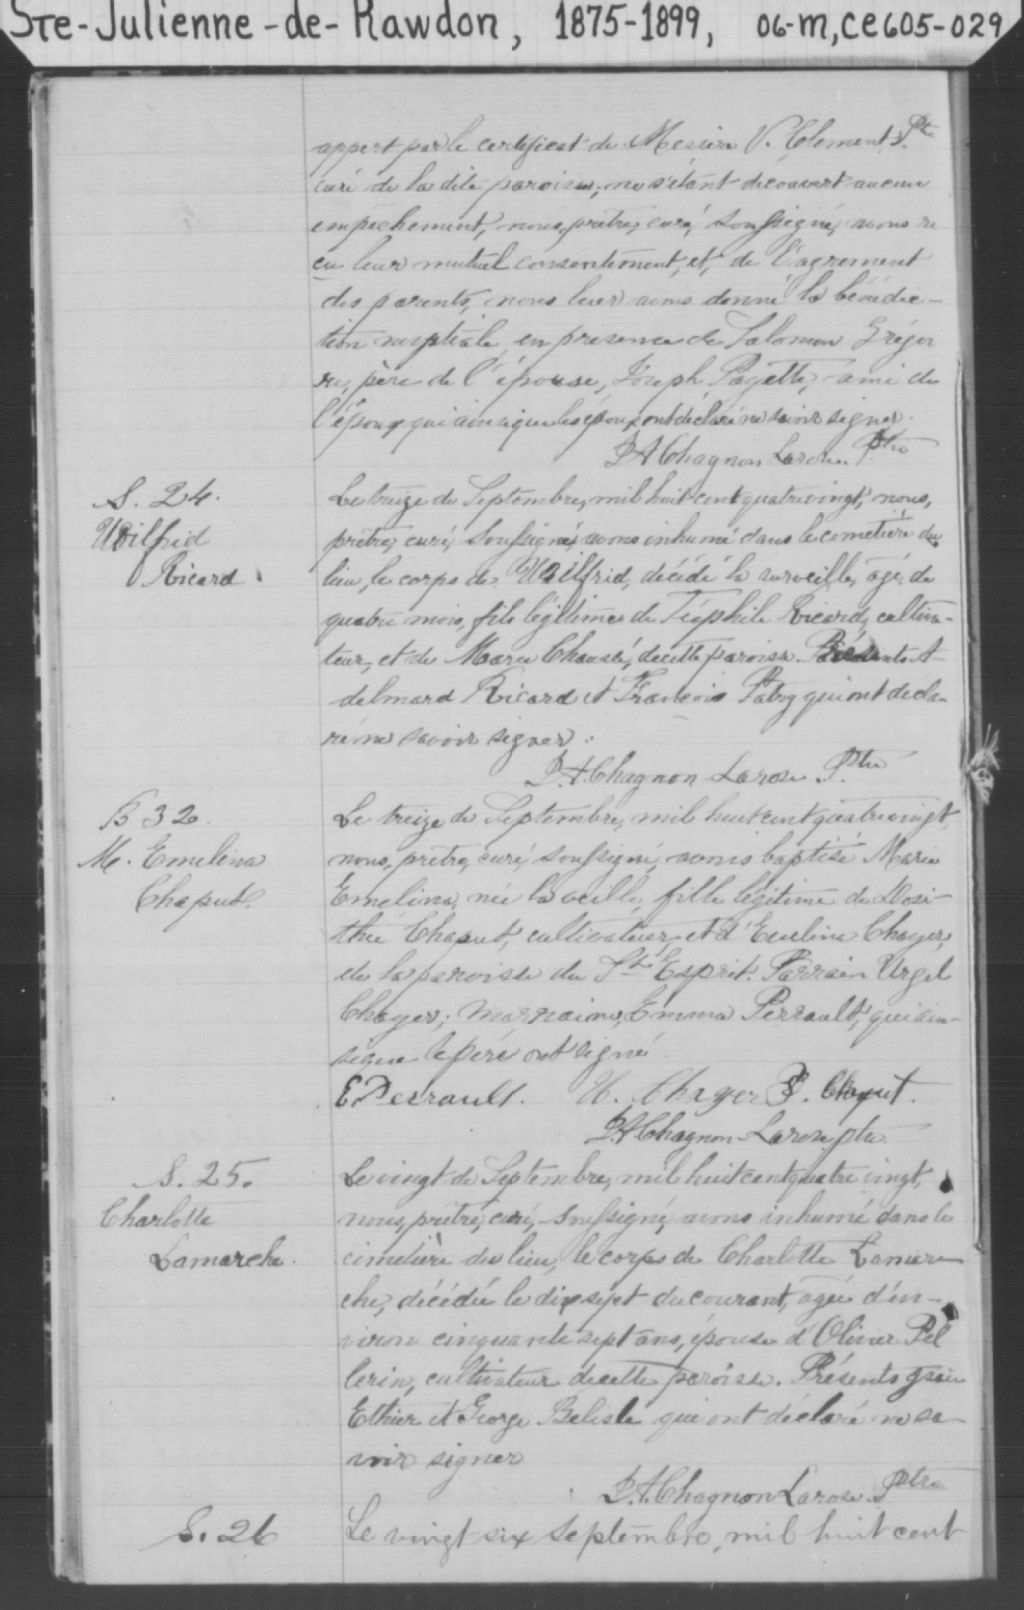 Ste-Julienne-de-Rawdon, 1875-1899, 06-M,CE605-029
appert par le certificat de Messire V. Clement Ptre
curé de la dite paroisse, ne s'étant découvert aucun
empêchement, nous, prêtre, curé, soussigné, avons re
çu leur mutuel consentement, et, de l'agrement
des parents, nous leur avons donné la bénédic-
tion nuptiale, en presence de Salomon Grégoi
re, père de l'épouse, Joseph Payette, ami de
l'époux qui ainsi que les époux ont déclaré ne savoir signer.
P A Chagnon Larose. Ptre
S. 24.
Wilfrid
Ricard
Le treize de Septembre, mil huit cent quatre vingt, nous,
prêtre, curé, soussigné, avons inhumé dans le cimetière du
lieu, le corps de Wilfrid, décédé la surveille, agé de
quatre mois, fils légitime de Téophile Ricard, cultiva-
teur, et de Marie Chaussé, de cette paroisse. Présents A
delmard Ricard et François Patry qui ont decla-
ré ne savoir signer.
P. A. Chagnon Larose. Ptre
B 32.
M. Emelina
Chaput.
Le treize de Septembre, mil huit cent quatre vingt,
nous, prêtre, curé, soussigné, avons baptisé Marie
Emelina, née la veille, fille légitime de Dosi-
thée Chaput, cultivateur et d'Eveline Chayer,
de la paroisse du St Esprit. Parrain Urgel
Chayer; marraine, Emma Perrault, qui ain-
si que le père ont signé.
E Perrault. U. Chayer D. Chaput.
P. A Chagnon-Larose ptre
S. 25.
Charlotte
Lamarche.
Le vingt de Septembre, mil huit cent quatre vingt,
nous, prêtre, curé, soussigné, avons inhumé dans le
cimetière du lieu, le corps de Charlotte Lamar
che, décédée le dix sept du courant, agée d'en-
viron cinquante sept ans, épouse d'Olivier Pel
lerin, cultivateur de cette paroisse. Présents
Ethier et George Belisle qui ont déclaré ne sa
voir signer
P. A. Chagnon Larose. Ptre
S. 26
Le vingt six Septembre, mil huit cent